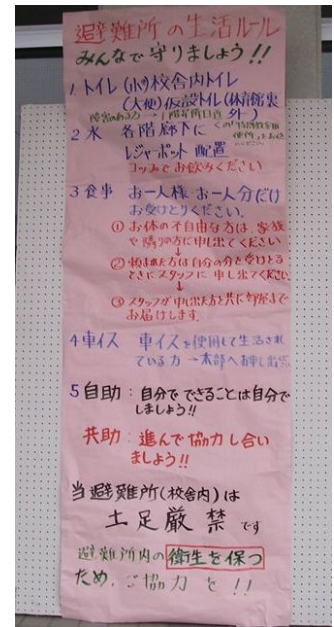 避難所の生活ルール
みんなで守りましょう!!
1 トイレ (小)校舎内トイレ
(大便)仮設トイレ(体育館裏
外)
2 水 各階廊下に
レジャーポット 配置
コップでお飲みください
3 食事 お一人様 お一人分だけ
お受けとりください。
① お体の不自由な方は、家族
や隣りの方に申し出てください
↓
ときにスタッフに 申し出てください
↓
③ スタッフが申し出た方と共に部屋まで
お届けします。
4 車イス 車イスを使用して生活され
ている方→本部へお申し出
5 自助: 自分でできることは自分で
しましょう!!
共助: 進んで協力し合い
ましょう!!
当避難所(校舎内)は
土足厳禁です
避難所内の衛生を保つ
ため、ご協力を!!